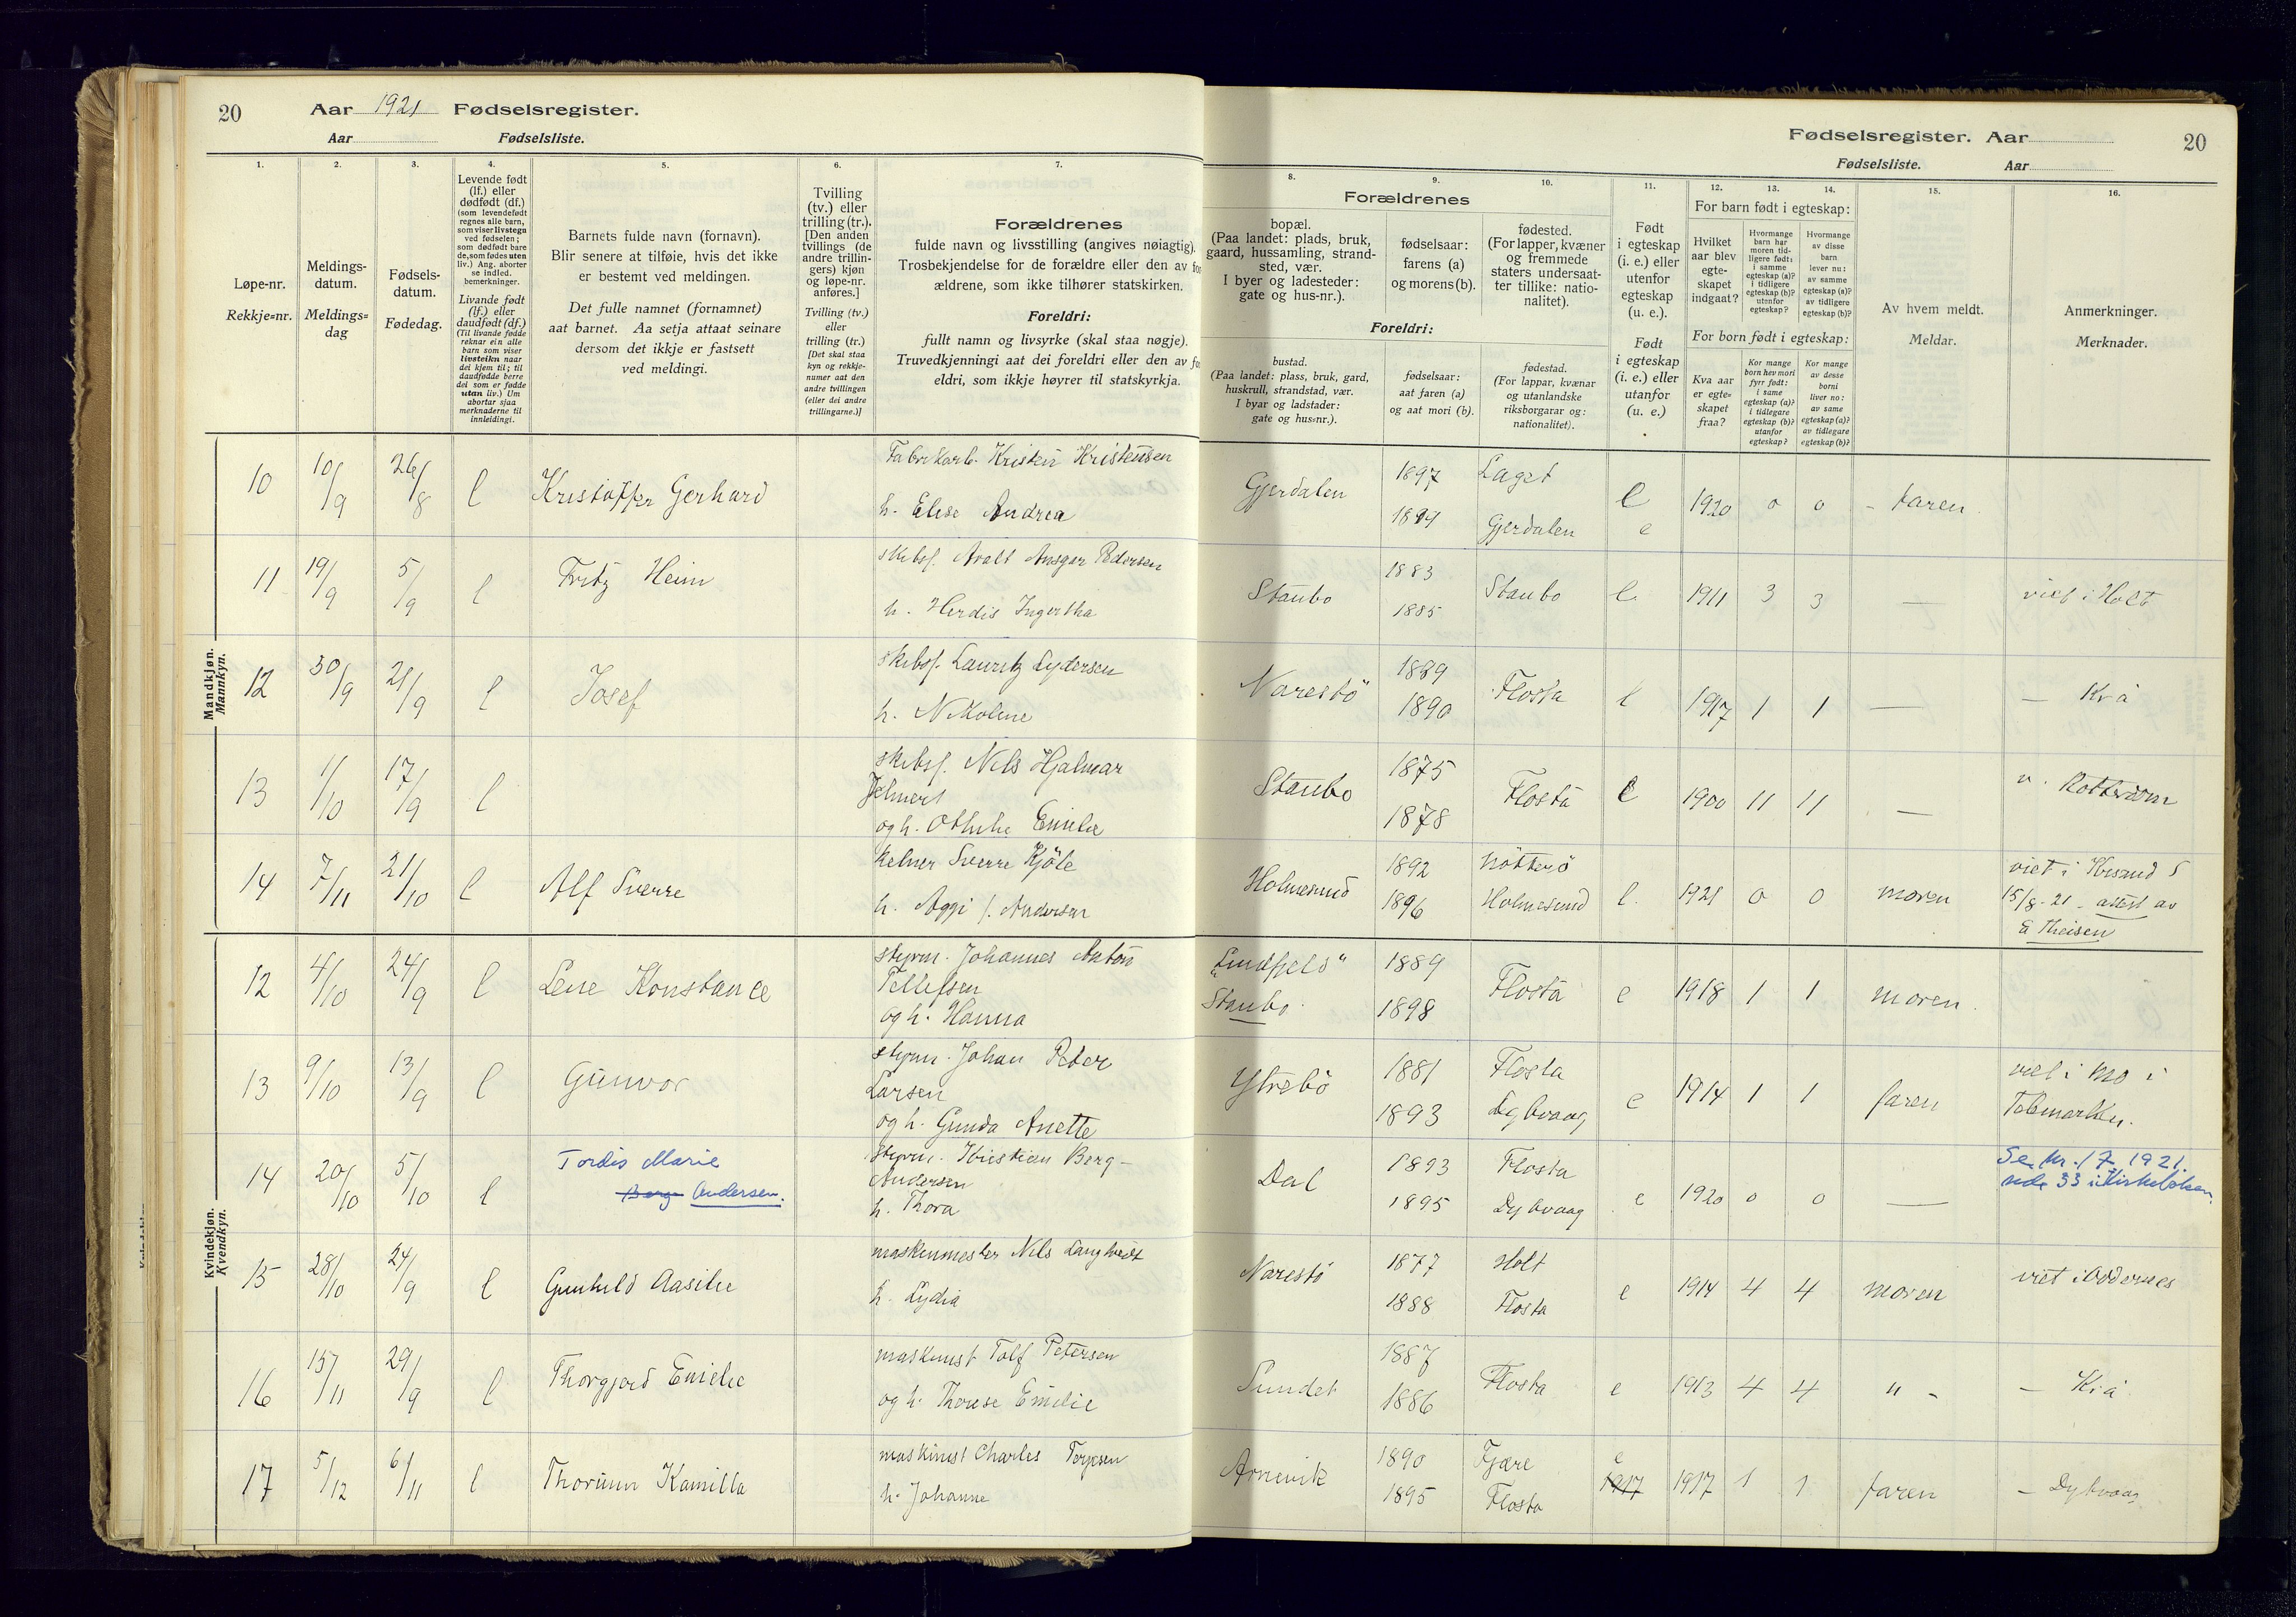 20 Aar 1921 Fødselsregister.
Aar Fødselsliste.
Fødselsregister. Aar 20
Fødselsliste. Aar
1. 2. 3. 4. 5. 6. 7.
Løpe-nr.
Rekkje-nr.
Meldings-
datum.
Meldings-
dag
Fødsels-
datum.
Fødedag.
Levende født
(lf.) eller
dødfødt (df.)
(som levendefødt
regnes alle barn,
som viser livstegn
ved fødselen;
som dødfødt bare
de, som fødes uten
liv.) Ang. aborter
se indled.
bemerkninger.
Livande født
(lf.) eller
daudfødt (df.)
(Til livande fødde
reknar ein alle
barn som viser
livsteikn naar
dei kjem til; til
daudfødde berre
dei som er fødde
utan liv.) Um
abortar sjaa
merknaderne til
innleidingi.
Barnets fulde navn (fornavn).
Blir senere at tilføie, hvis det ikke
er bestemt ved meldingen.
Det fulle namnet (fornamnet)
aat barnet. Aa setja attaat seinare
dersom det ikkje er fastsett
ved meldingi.
Tvilling
(tv.) eller
trilling (tr.).
[Den anden
tvillings (de
andre trillin-
gers) kjøn
og løpe-nr.
anføres.]
Tvilling (tv.)
eller
trilling (tr.)
[Det skal staa
kyn og rekkje-
numer aat den
andre tvillingen
(eller dei andre
trillingarne.)]
Forældrenes
fulde navn og livsstilling (angives nøiagtig).
Trosbekjendelse for de forældre eller den av for-
ældrene, som ikke tilhører statskirken.
Foreldri:
fullt namn og livsyrke (skal staa nøgje).
Truvedkjenningi aat dei foreldri eller den av for-
eldri, som ikkje høyrer til statskyrkja.
8. 9. 10. 11. 12. 13. 14. 15. 16.
Forældrenes
bopæl.
(Paa landet: plads, bruk,
gaard, hussamling, strand-
sted, vær.
I byer og ladesteder:
gate og hus-nr.).
fødselsaar:
farens (a)
og morens (b).
fødested.
(For lapper, kvæner
og fremmede
staters undersaat-
ter tillike: natio-
nalitet).
Foreldri:
bustad.
(Paa landet: plass, bruk, gard,
huskrull, strandstad, vær.
I byar og ladstader:
gate og hus-nr.).
fødselsaar:
aat faren (a)
og aat mori (b).
fødestad.
(For lappar, kvænar
og utanlandske
riksborgarar og:
nationalitet).
Født
i egteskap
(i. e.) eller
utenfor
egteskap
(u. e.).
Født
i egteskap
(i. e.) eller
utanfor
(u. e.)
For barn født i egteskap:
Hvilket
aar blev
egte-
skapet
indgaat?
Hvormange
barn har
moren tid-
ligere født:
i samme
egteskap (a)?
i tidligere
egteskap (b)?
utenfor
egteskap?
Hvormange
av disse
barn
lever nu:
av samme
egteskap (a)?
av tidligere
egteskap (b)?
For born født i egteskap:
Kva aar
er egte-
skapet
fraa?
Kor mange
born hev mori
fyrr født:
i same
egteskap (a)?
i tidlegare
egteskap (b)?
utanfor
egteskap?
Kor mange
av desse
borni
liver no:
av same
egteskap (a)?
av tidlegare
egteskap (b)?
Av hvem meldt.
Meldar.
Anmerkninger.
Merknader.
Mandkjøn.
Mannkyn.
10 10/9 26/8 l Kristoffer Gerhard Fabrikarb. Kristen Kristensen
h. Elise Andrea
Gjerdalen 1897 Laget
Gjerdalen e 1920 0 0 - faren
11 19/9 5/9 l Fritz Heim skibsf. Avalt Ansgar Pedersen
h. Herdis Ingertha
Staubo 1883 1885 Staubo e 1911 3 3 — viet i Holt
12 30/9 21/9 l Josef skibsf. Lauritz Lydersen
h. Nikoline
Narestö 1889 1890 Flosta e 1917 1 1 — — Kr.å
13 1/10 17/9 l skibsf. Nils Hjalmar
og h. Othilie Emilie
Staubo 1875 1878 Flosta e 1900 11 11 — v. Rotterdam
14 7/11 21/10 l Alf Sverre kelner Sverre Kjöle
h. Aggi f. Andersen
Holmesund 1892 1896 Nötterö
Holmesund e. 1921 0 0 moren viet i Krsand S
15/8-21 - attest av
E Theisen
Kvindekjøn.
Kvendkyn.
12 4/10 24/9 l Lene Konstance styrm. Johannes Anton
Tellefsen
og h. Hanna
"Lindfjeld"
Staubo. 1889 1898 Flosta e 1918 1 1 moren.
13 9/10 13/9 l Gunvor styrm. Johan Peder
Larsen
og h. Gunda Anette
Ytrebö 1881 1893 Flosta
Dybvaag e 1914 1 1 faren viet i Mo i
Telemarken.
14 20/10 5/10 l Tordis Marie
Berg Andersen.
styrm. Kristian Berg-
Andersen
h. Thora
Dal 1893 1895 Flosta
Dybvaag e 1920 0 0 — Se nr. 17 1921.
side 33 i Kirkeboken.
15 28/10 24/9 l Gunhild Aasilie maskinmester Nils Langtvedt
h. Lydia
Narestö 1877 1888 Holt
Flosta e 1914 4 4 moren viet i Oddernes
16 15/11 29/9 l Thorgjerd Emelie maskinist Tolf Petersen
og h. Therese Emilie
Sundet 1887 1886 Flosta e 1913 4 4 " - — Kr.å
17 5/12 6/11 l Thorunn Kamilla maskinist Charles Terjesen
h. Johanne
Arnevik 1890 1895 Fjære
Flosta e 1917 1917 1 1 faren — Dybvaag